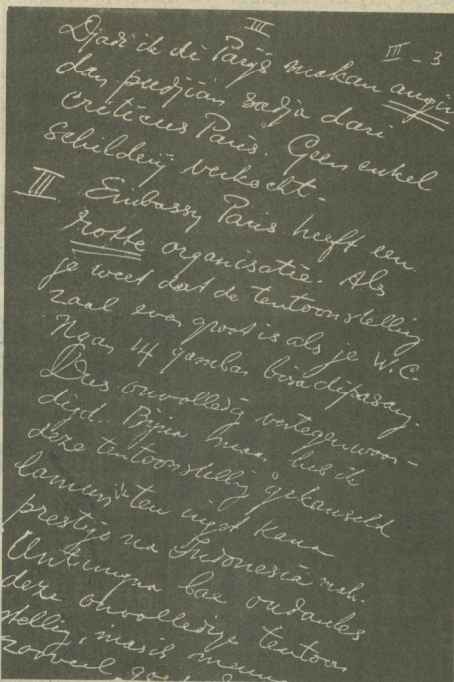 III
III - 3
Djadi ik di Parijs makan angin
dan pudjian sadja dari
criticus Paris. Geen enkel
schilderij verkocht -
III. Embassy Paris heeft een
rotte organisatie. Als
je weet dat de tentoonstelling
zaal even groot is als je W.C.
14 gambar bisa dipasang.
Dus onvolledig vertegenwoor-
digd. maar heb ik
deze tentoonstelling gekanseld
lamun ten inget kana
prestije na Indonesia mah.
Untungna bae ondanks
deze onvolledige tentoon
stelling, masih
zoveel